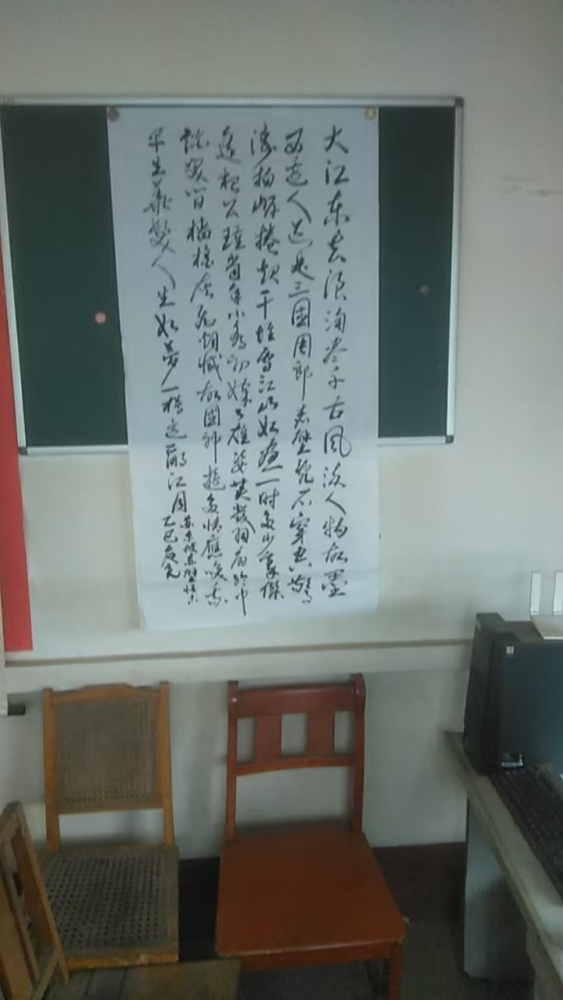 大江东去浪淘尽千古风流人物故壘
西边人道是三國周郎赤壁乱石穿空驚
涛拍岸捲起千堆雪江山如画一时多少豪傑
遥想公瑾当年小乔初嫁了雄姿英發羽扇纶巾
談笑间樯橹灰飞烟灭故國神遊多情應笑我
早生華髮人生如夢一樽还酹江月
苏东坡赤壁怀古
乙巳夏